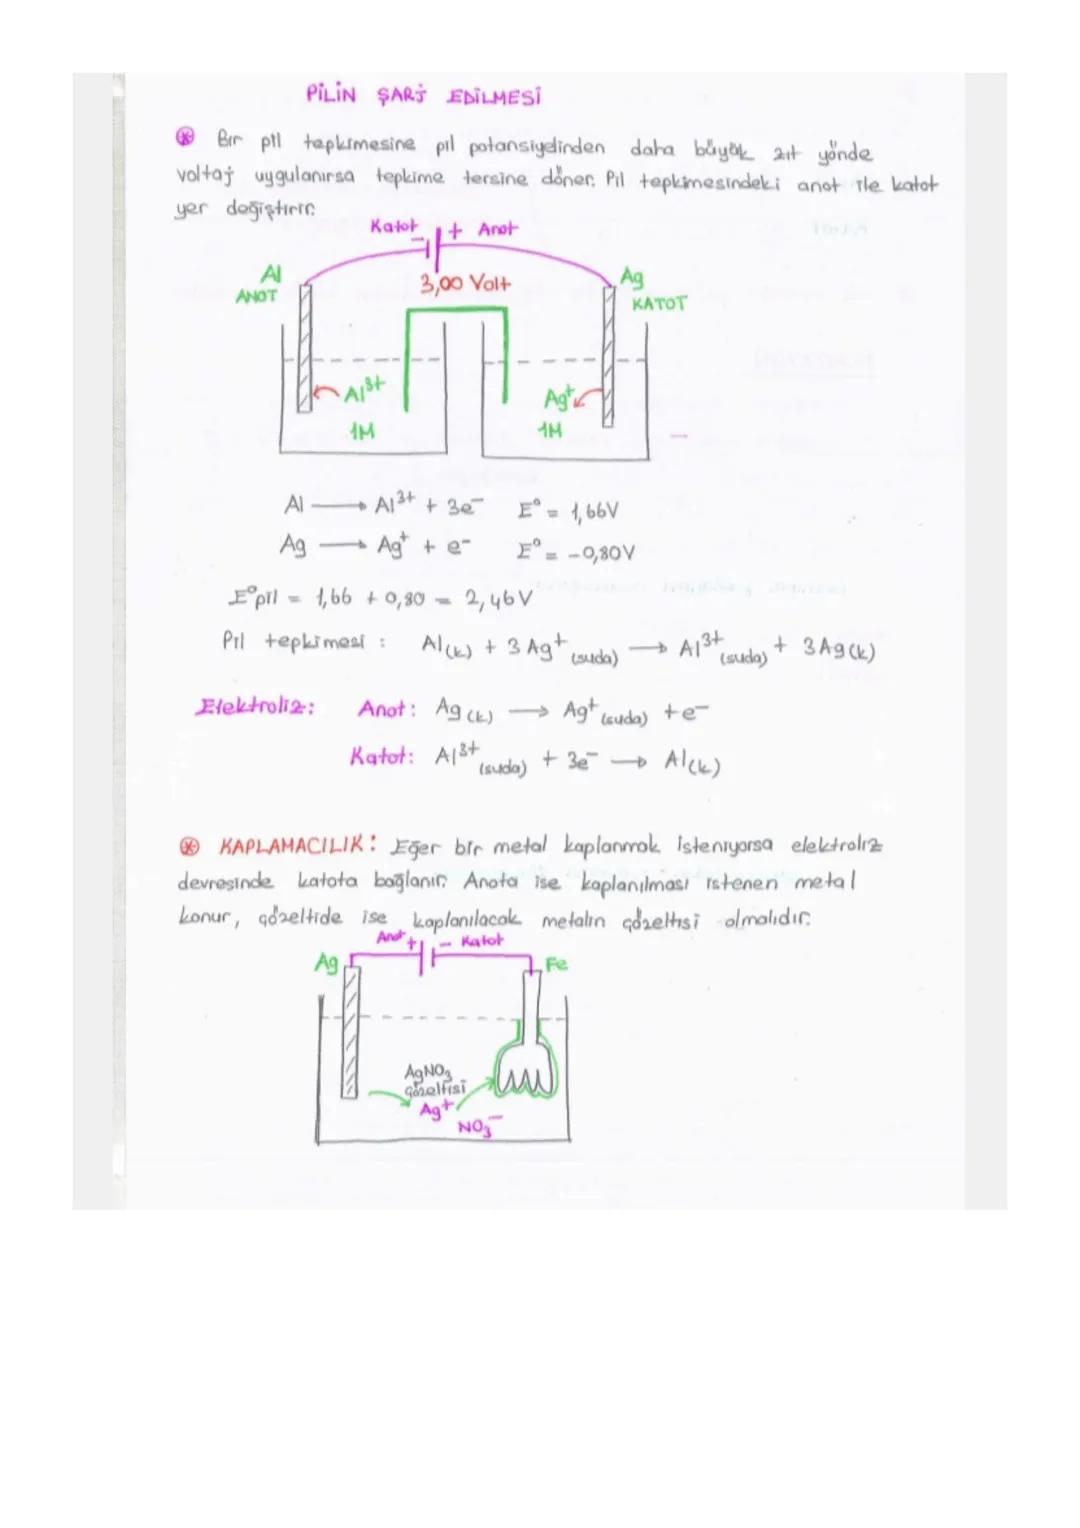 PİLİN ŞARJ EDİLMESİ
Bir pil tepkimesine pil potansiyelinden daha büyük zıt yönde
voltaj uygulanırsa tepkime tersine döner. Pil tepkimesindeki anot ile katot
yer değiştirir.
Katot - + Anot
Al
ANOT
3,00 Volt
Ag
KATOT
Al3+
1M
Ag+
1M
Al → Al3+ + 3e- E° = 1,66V
Ag → Ag+ + e- E° = -0,80V
E°pil = 1,66 + 0,80 = 2,46V
Pil tepkimesi : Al(k) + 3 Ag+ (suda) → Al3+ (suda) + 3Ag(k)
Elektroliz: Anot: Ag(k) → Ag+ (suda) + e-
Katot: Al3+ (suda) + 3e- → Al(k)
KAPLAMACILIK: Eğer bir metal kaplanmak isteniyorsa elektroliz
devresinde katota bağlanır. Anota ise kaplanılması istenen metal
konur, çözeltide ise kaplanılacak metalin çözeltisi olmalıdır.
Anot + - Katot
Ag
Fe
AgNO3
çözeltisi
Ag+
NO3-